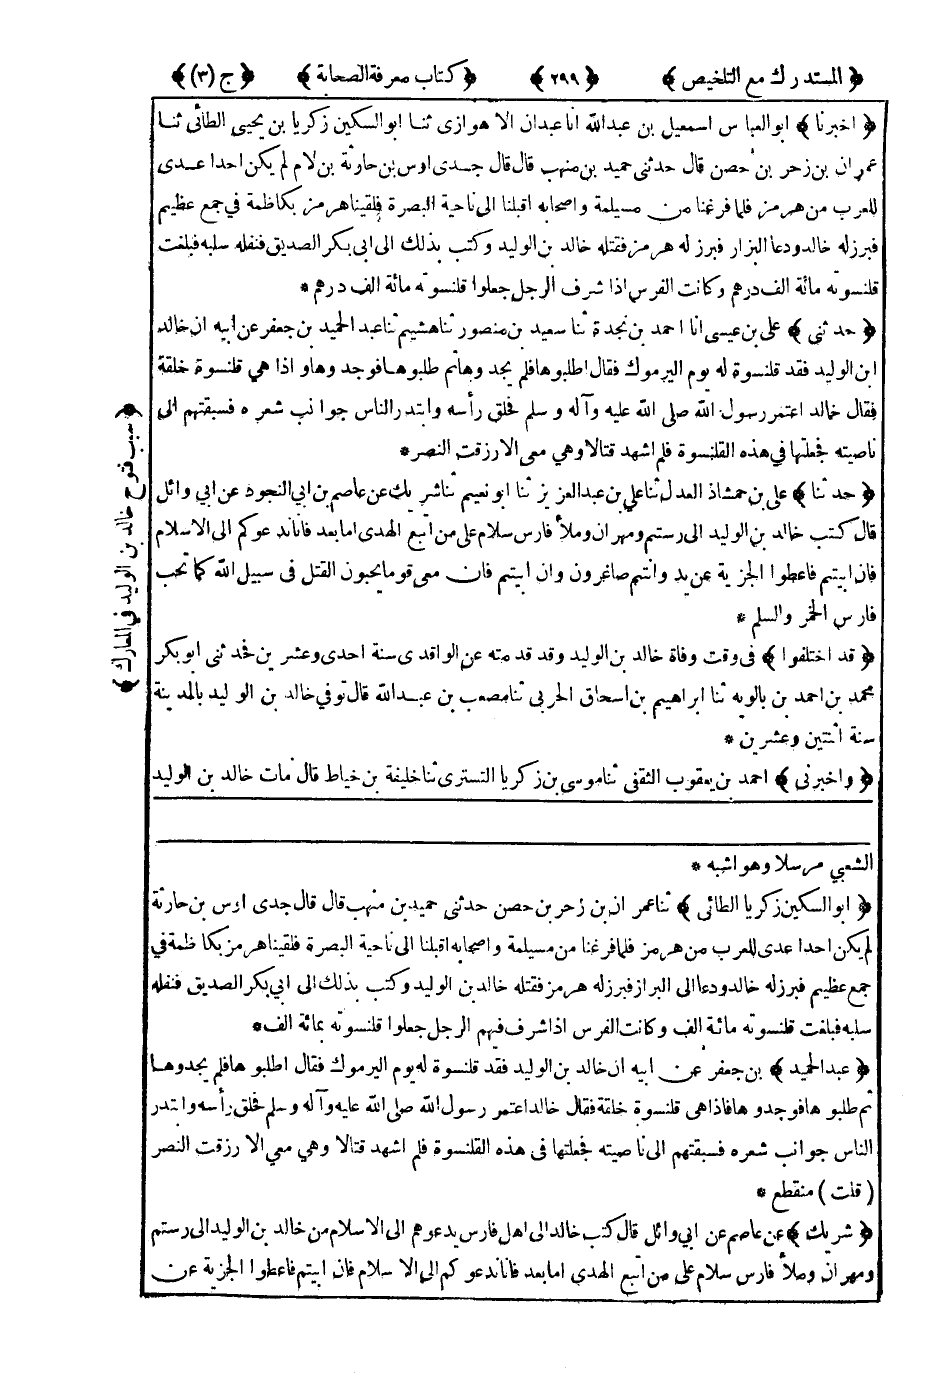 ﴿ المستدرك مع التلخيص ﴾ ﴿ ٢٩٩ ﴾ ﴿ كتاب معرفة الصحابة ﴾ ﴿ ج (٣) ﴾
﴿ اخبرنا ﴾ ابو العباس اسمعيل بن عبدالله انا عبدان الاهوازى ثنا ابو السكين زكريا بن يحيى الطائى ثنا
عمران بن زحر بن حصن قال حدثنى حميد بن منهب قال قال جدى اوس بن حارثة بن لام لم يكن احدا عدى
للعرب من هرمز فلما فرغنا من مسيلمة واصحابه اقبلنا الى ناحية البصرة فلقينا هرمز بكاظمة في جمع عظيم
فبرز له خالد ودعا البزار فبرز له هرمز فقتله خالد بن الوليد وكتب بذلك الى ابى بكر الصديق فنفله سلبه فبلغت
قلنسوته مائة الف درهم وكانت الفرس اذا شرف الرجل جعلوا قلنسوته مائة الف درهم *
﴿ حدثنى ﴾ على بن عيسى انا احمد بن نجدة ثنا سعيد بن منصور ثنا هشيم ثنا عبد الحميد بن جعفر عن ابيه ان خالد
ابن الوليد فقد قلنسوة له يوم اليرموك فقال اطلبوها فلم يجدوها ثم طلبوها فوجدوها و اذا هي قلنسوة خلقة
فقال خالد اعتمر رسول الله صلى الله عليه وآله وسلم فحلق رأسه وابتدر الناس جوانب شعره فسبقتهم الى
ناصيته فجعلتها في هذه القلنسوة فلم اشهد قتالا وهي معى الا رزقت النصر *
﴿ حدثنا ﴾ على بن حمشاذ العدل ثنا على بن عبد العزيز ثنا ابو نعيم ثنا شريك عن عاصم بن ابي النجود عن ابي وائل
قال كتب خالد بن الوليد الى رستم ومهران وملأ فارس سلام على من اتبع الهدى اما بعد فانا ندعوكم الى الاسلام
فان ابيتم فاعطوا الجزية عن يد وانتم صاغرون وان ابيتم فان معى قوما يحبون القتل فى سبيل الله كما تحب
فارس الخمر والسلم *
﴿ قد اختلفوا ﴾ فى وقت وفاة خالد بن الوليد وقد قدمته عن الواقدى سنة احدى وعشرين فحدثنى ابو بكر
محمد بن احمد بن بالويه ثنا ابراهيم بن اسحاق الحربى ثنا مصعب بن عبدالله قال توفي خالد بن الوليد بالمدينة
سنة اثنتين وعشرين *
﴿ واخبرنى ﴾ احمد بن يعقوب الثقفى ثنا موسى بن زكريا التسترى ثنا خليفة بن خياط قال مات خالد بن الوليد
﴿ سبب فتوح خالد بن الوليد في المعارك ﴾
الشعبي مرسلا وهو اشبه *
﴿ ابو السكين زكريا الطائى ﴾ ثنا عمران بن زحر بن حصن حدثنى حميد بن منهب قال قال جدى اوس بن حارثة
لم يكن احدا عدى للعرب من هرمز فلما فرغنا من مسيلمة واصحابه اقبلنا الى ناحية البصرة فلقينا هرمز بكاظمة في
جمع عظيم فبرز له خالد ودعا الى البراز فبرز له هرمز فقتله خالد بن الوليد وكتب بذلك الى ابي بكر الصديق فنفله
سلبه فبلغت قلنسوته مائة الف وكانت الفرس اذا شرف فيهم الرجل جعلوا قلنسوته بمائة الف *
﴿ عبد الحميد ﴾ بن جعفر عن ابيه ان خالد بن الوليد فقد قلنسوة له يوم اليرموك فقال اطلبوها فلم يجدوها
ثم طلبوها فوجدوها فاذا هى قلنسوة خلقة فقال خالد اعتمر رسول الله صلى الله عليه وآله وسلم فحلق رأسه وابتدر
الناس جوانب شعره فسبقتهم الى ناصيته فجعلتها فى هذه القلنسوة فلم اشهد قتالا وهي معي الا رزقت النصر
( قلت ) منقطع *
﴿ شريك ﴾ عن عاصم عن ابي وائل قال كتب خالد الى اهل فارس يدعوهم الى الاسلام من خالد بن الوليد الى رستم
ومهران وملأ فارس سلام على من اتبع الهدى اما بعد فانا ندعوكم الى الاسلام فان ابيتم فاعطوا الجزية عن